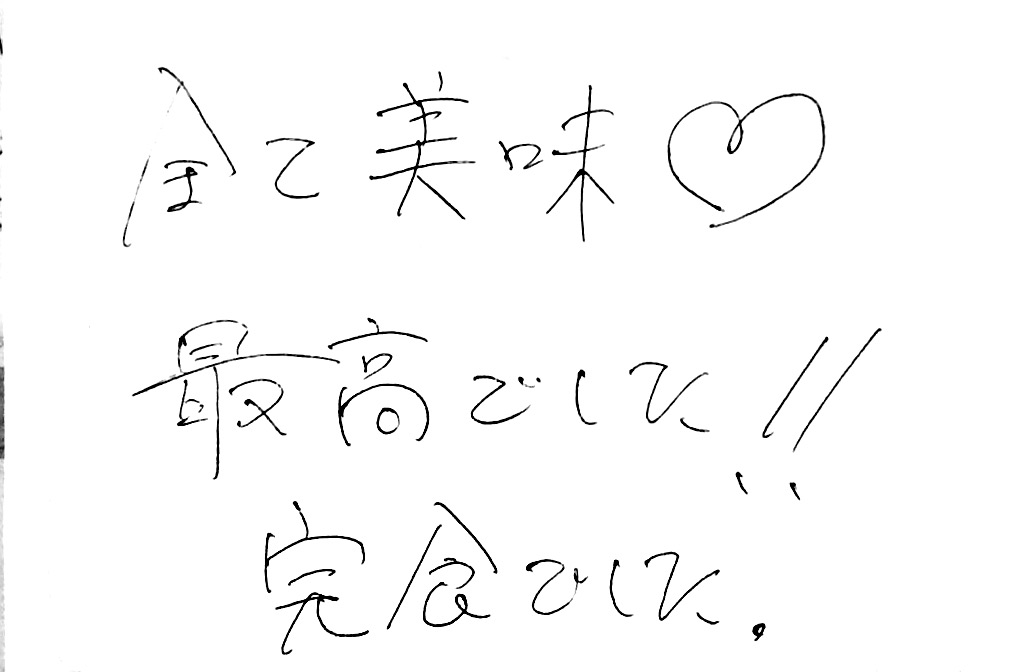 全て美味♡
最高でした!!
完食でした.